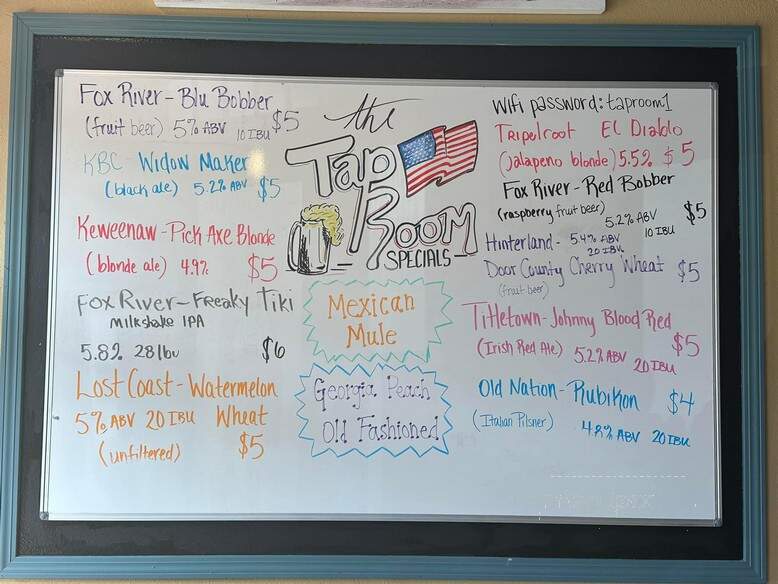 Fox River - Blu Bobber
(fruit beer) 5% ABV 10 IBU $5
KBC Widow Maker
(black ale) 5.2% ABV $5
Keweenaw - Pick Axe Blonde
(blonde ale) 4.9% $5
Fox River - Freaky Tiki
Milkshake IPA
5.8% 28 ibu $6
Lost Coast - Watermelon
5% ABV 20 IBU Wheat
(unfiltered) $5
the
Tap
Room
SPECIALS
Mexican
Mule
Georgia Peach
Old Fashioned
Wifi password: taproom1
Tripelroot El Diablo
(jalapeno blonde) 5.5% $5
Fox River - Red Bobber
(raspberry fruit beer) 5.2% ABV $5
10 IBU
Hinterland - 5.4% ABV
20 IBU
Door County Cherry Wheat $5
(fruit beer)
Titletown - Johnny Blood Red
(Irish Red Ale) 5.2% ABV $5
20 IBU
Old Nation - Rubikon $4
(Italian Pilsner) 4.8% ABV 20 IBU